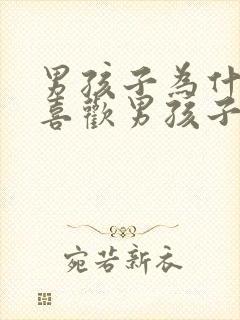 男孩子為什
喜歡男孩子
宛若新衣